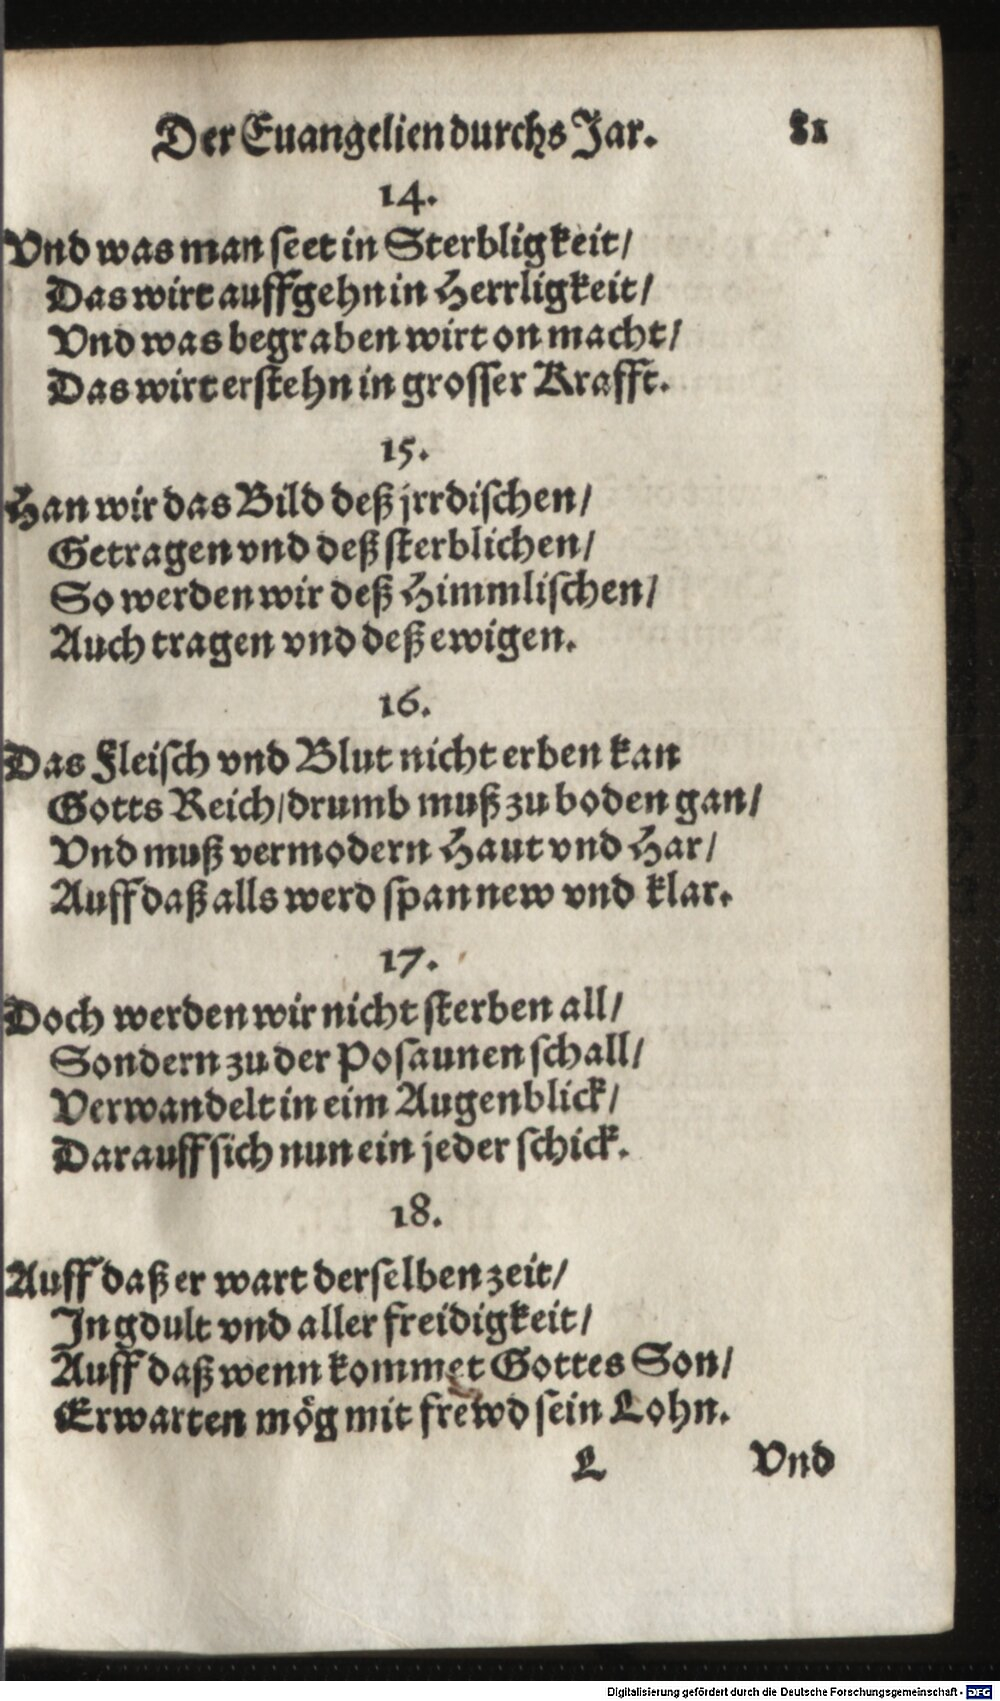 Der Euangelien durchs Jar. 81
14.
Vnd was man seet in Sterbligkeit/
Das wirt auffgehn in Herrligkeit/
Vnd was begraben wirt on macht/
Das wirt erstehn in grosser Krafft.
15.
Han wir das Bild deß jrrdischen/
Getragen vnd deß sterblichen/
So werden wir deß Himmlischen/
Auch tragen vnd deß ewigen.
16.
Das Fleisch vnd Blut nicht erben kan
Gotts Reich/drumb muß zu boden gan/
Vnd muß vermodern Haut vnd Har/
Auff daß alls werd spannew vnd klar.
17.
Doch werden wir nicht sterben all/
Sondern zu der Posaunen schall/
Verwandelt in eim Augenblick/
Darauff sich nun ein jeder schick.
18.
Auff daß er wart derselben zeit/
In gdult vnd aller freidigkeit/
Auff daß wenn kommet Gottes Son/
Erwarten mög mit frewd sein Lohn.
L Vnd
Digitalisierung gefördert durch die Deutsche Forschungsgemeinschaft - DFG